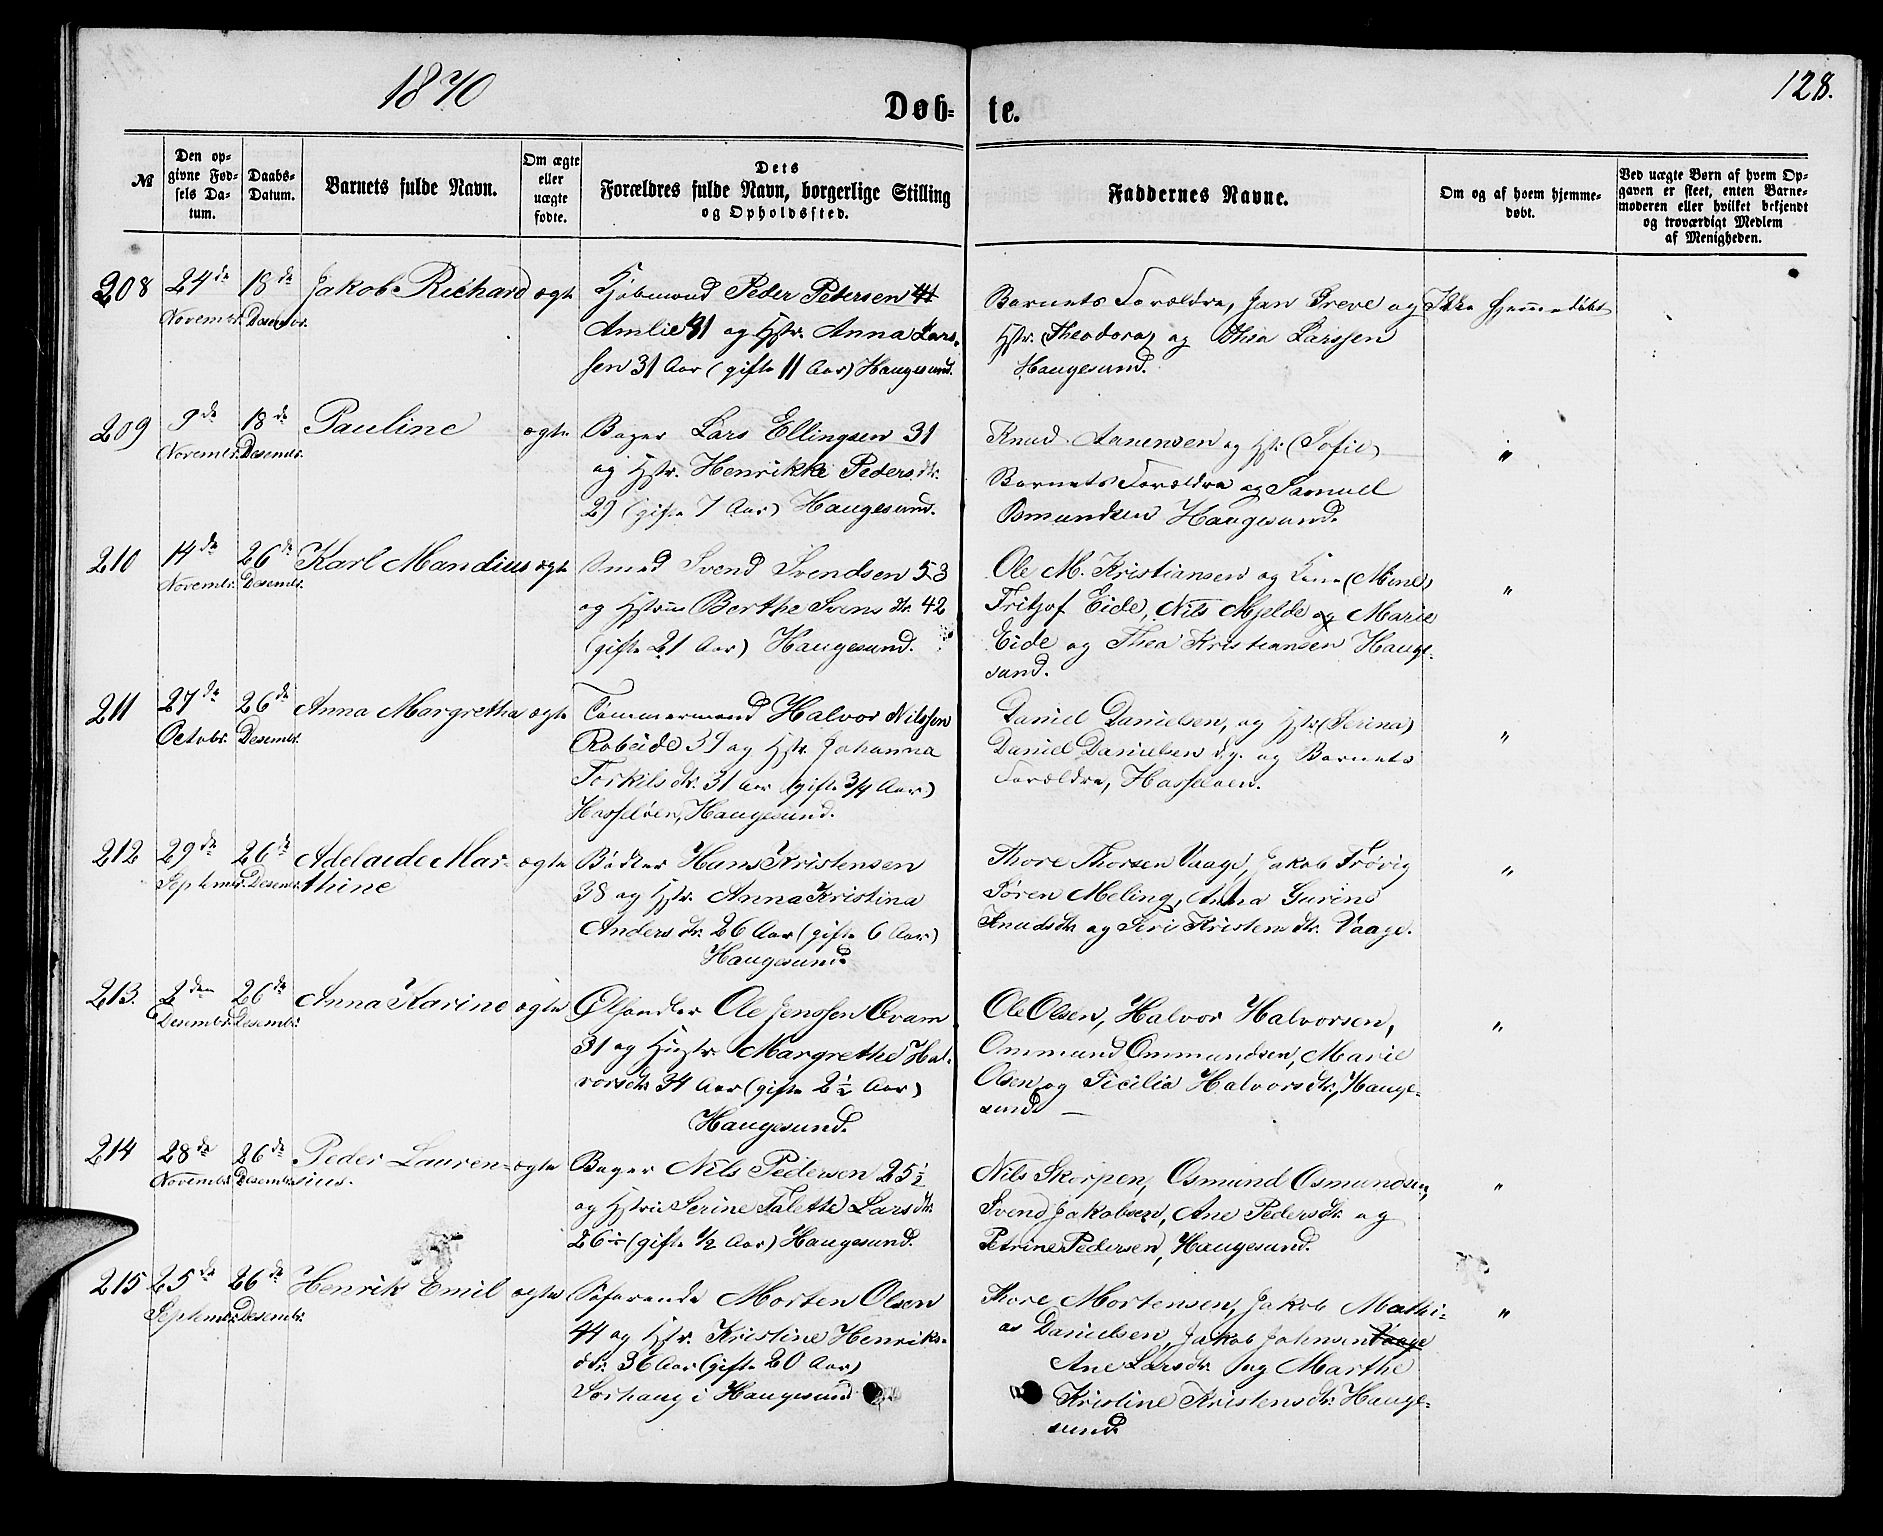 1870
128.
Døb- te.
№
Den opgivne Fødsels Datum.
Daabs-Datum.
Barnets fulde Navn.
Om ægte eller uægte fødte.
Dets Forældres fulde Navn, borgerlige Stilling og Opholdssted.
Faddernes Navne.
Om og af hvem hjemmedøbt.
Ved uægte Børn af hvem Opgaven er skeet, enten Barnemoderen eller hvilket bekjendt og troværdigt Medlem af Menigheden.
208 24de Novembr. 18de Desembr. Jakob Richard ægte
Kjøbmand Peder Petersen
Amlie 41 og Hstr. Anna Lars-
sen 31 Aar (gifte 11 Aar) Haugesund.
Barnets Forældre, Jan Greve og
Hstr. (Theodora) og Thea Larssen
Haugesund.
Ikke hjemmedøbt
209 9de Novembr. 18de Desembr. Pauline ægte
Bager Lars Ellingsen 31
og Hstr. Henrikke Pedersdtr.
29 (gifte 7 Aar) Haugesund.
Knud Aanensen og Hstr. (Sofie)
Barnets Forældre og Samuel
Osmundsen Haugesund.
"
210 14de Novembr. 26de Desembr. Karl Mandius ægte
Smed Svend Svendsen 53
og Hstru Berthe Svensdtr. 42
(gifte 21 Aar) Haugesund.
Ole M. Kristiansen og Kone (Mine)
Fritjof Eide, Nils Mjelde og Marie
Eide og Thea Kristiansen Hauge-
sund.
"
211 27de Octobr. 26de Desembr. Anna Margretha ægte
Tømmermand Halvor Nilssen
Røbeide 39 og Hstr. Johanna
Torkilsdtr. 31 Aar (gifte 3/4 Aar)
Hasseløen, Haugesund.
Daniel Danielsen, og Hstr. (Serina)
Daniel Danielsen d.y. og Barnets
Forældre, Hasseløen.
"
212 29de Septembr. 26de Desembr. Adelaide Mar-
thine ægte
Bødker Hans Kristensen
38 og Hstr. Anna Kristina
Andersdtr. 26 Aar (gifte 6 Aar)
Haugesund.
Thore Thorsen Vaage, Jakob Trøvig
Søren Meling, Anna Gurine
Knudsdtr. og Siri Kristensdtr. Vaage.
"
213. 2den Desembr. 26de Desembr. Anna Karine ægte
Ølhandler Ole Jenssen Qvam
31 og Hustr. Margrethe Hal-
vorsdtr. 34 Aar (gifte 2½ Aar)
Haugesund.
Ole Olsen, Halvor Halvorsen,
Ommund Ommundsen, Marie
Olsen og Sicilia Halvorsdtr., Hauge-
sund
"
214 28de Novembr. 26de Desembr. Peder Lauren-
sius. ægte
Bager Nils Pedersen 25½
og Hstru Serine Talette Larsdtr.
26½ (gifte 1/2 Aar) Haugesund.
Nils Skorpen, Osmund Osmundsen,
Svend Jakobsen, Ane Pedersdtr. og
Petrine Pedersen, Haugesund.
"
215 25de Septembr. 26de Desembr. Henrik Emil ægte
Søfarende Morten Olsen
44 og Hstr. Kristine Henriks-
dtr. 36 Aar (gifte 20 Aar)
Sørhaug i Haugesund
Thore Mortensen, Jakob Mathi-
as Danielsen, Jakob Johnsen Vaage
Ane Larsdtr. og Marthe
Kristine Kristensdtr. Hauge-
sund.
"